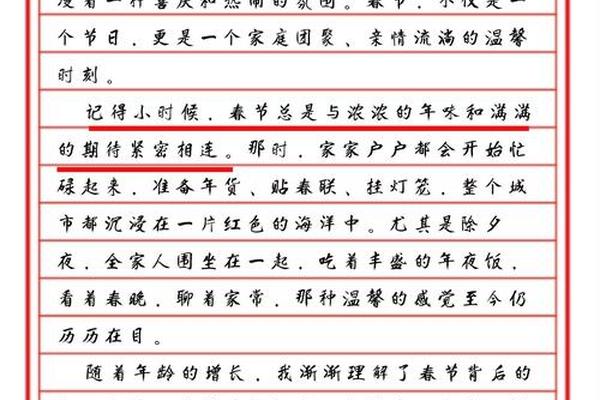 漫着一种喜庆和热闹的氛围。春节，不仅是一
个节日，更是一个家庭团聚、亲情流淌的温馨
时刻。
记得小时候，春节总是与浓浓的年味和满满
的期待紧密相连。那时，家家户户都会开始忙
碌起来，准备年货、贴春联、挂灯笼，整个城
市都沉浸在一片红色的海洋中。尤其是除夕
夜，全家人围坐在一起，吃着丰盛的年夜饭，
看着春晚，聊着家常，那种温馨的感觉至今仍
历历在目。
随着年龄的增长，我渐渐理解了春节背后的